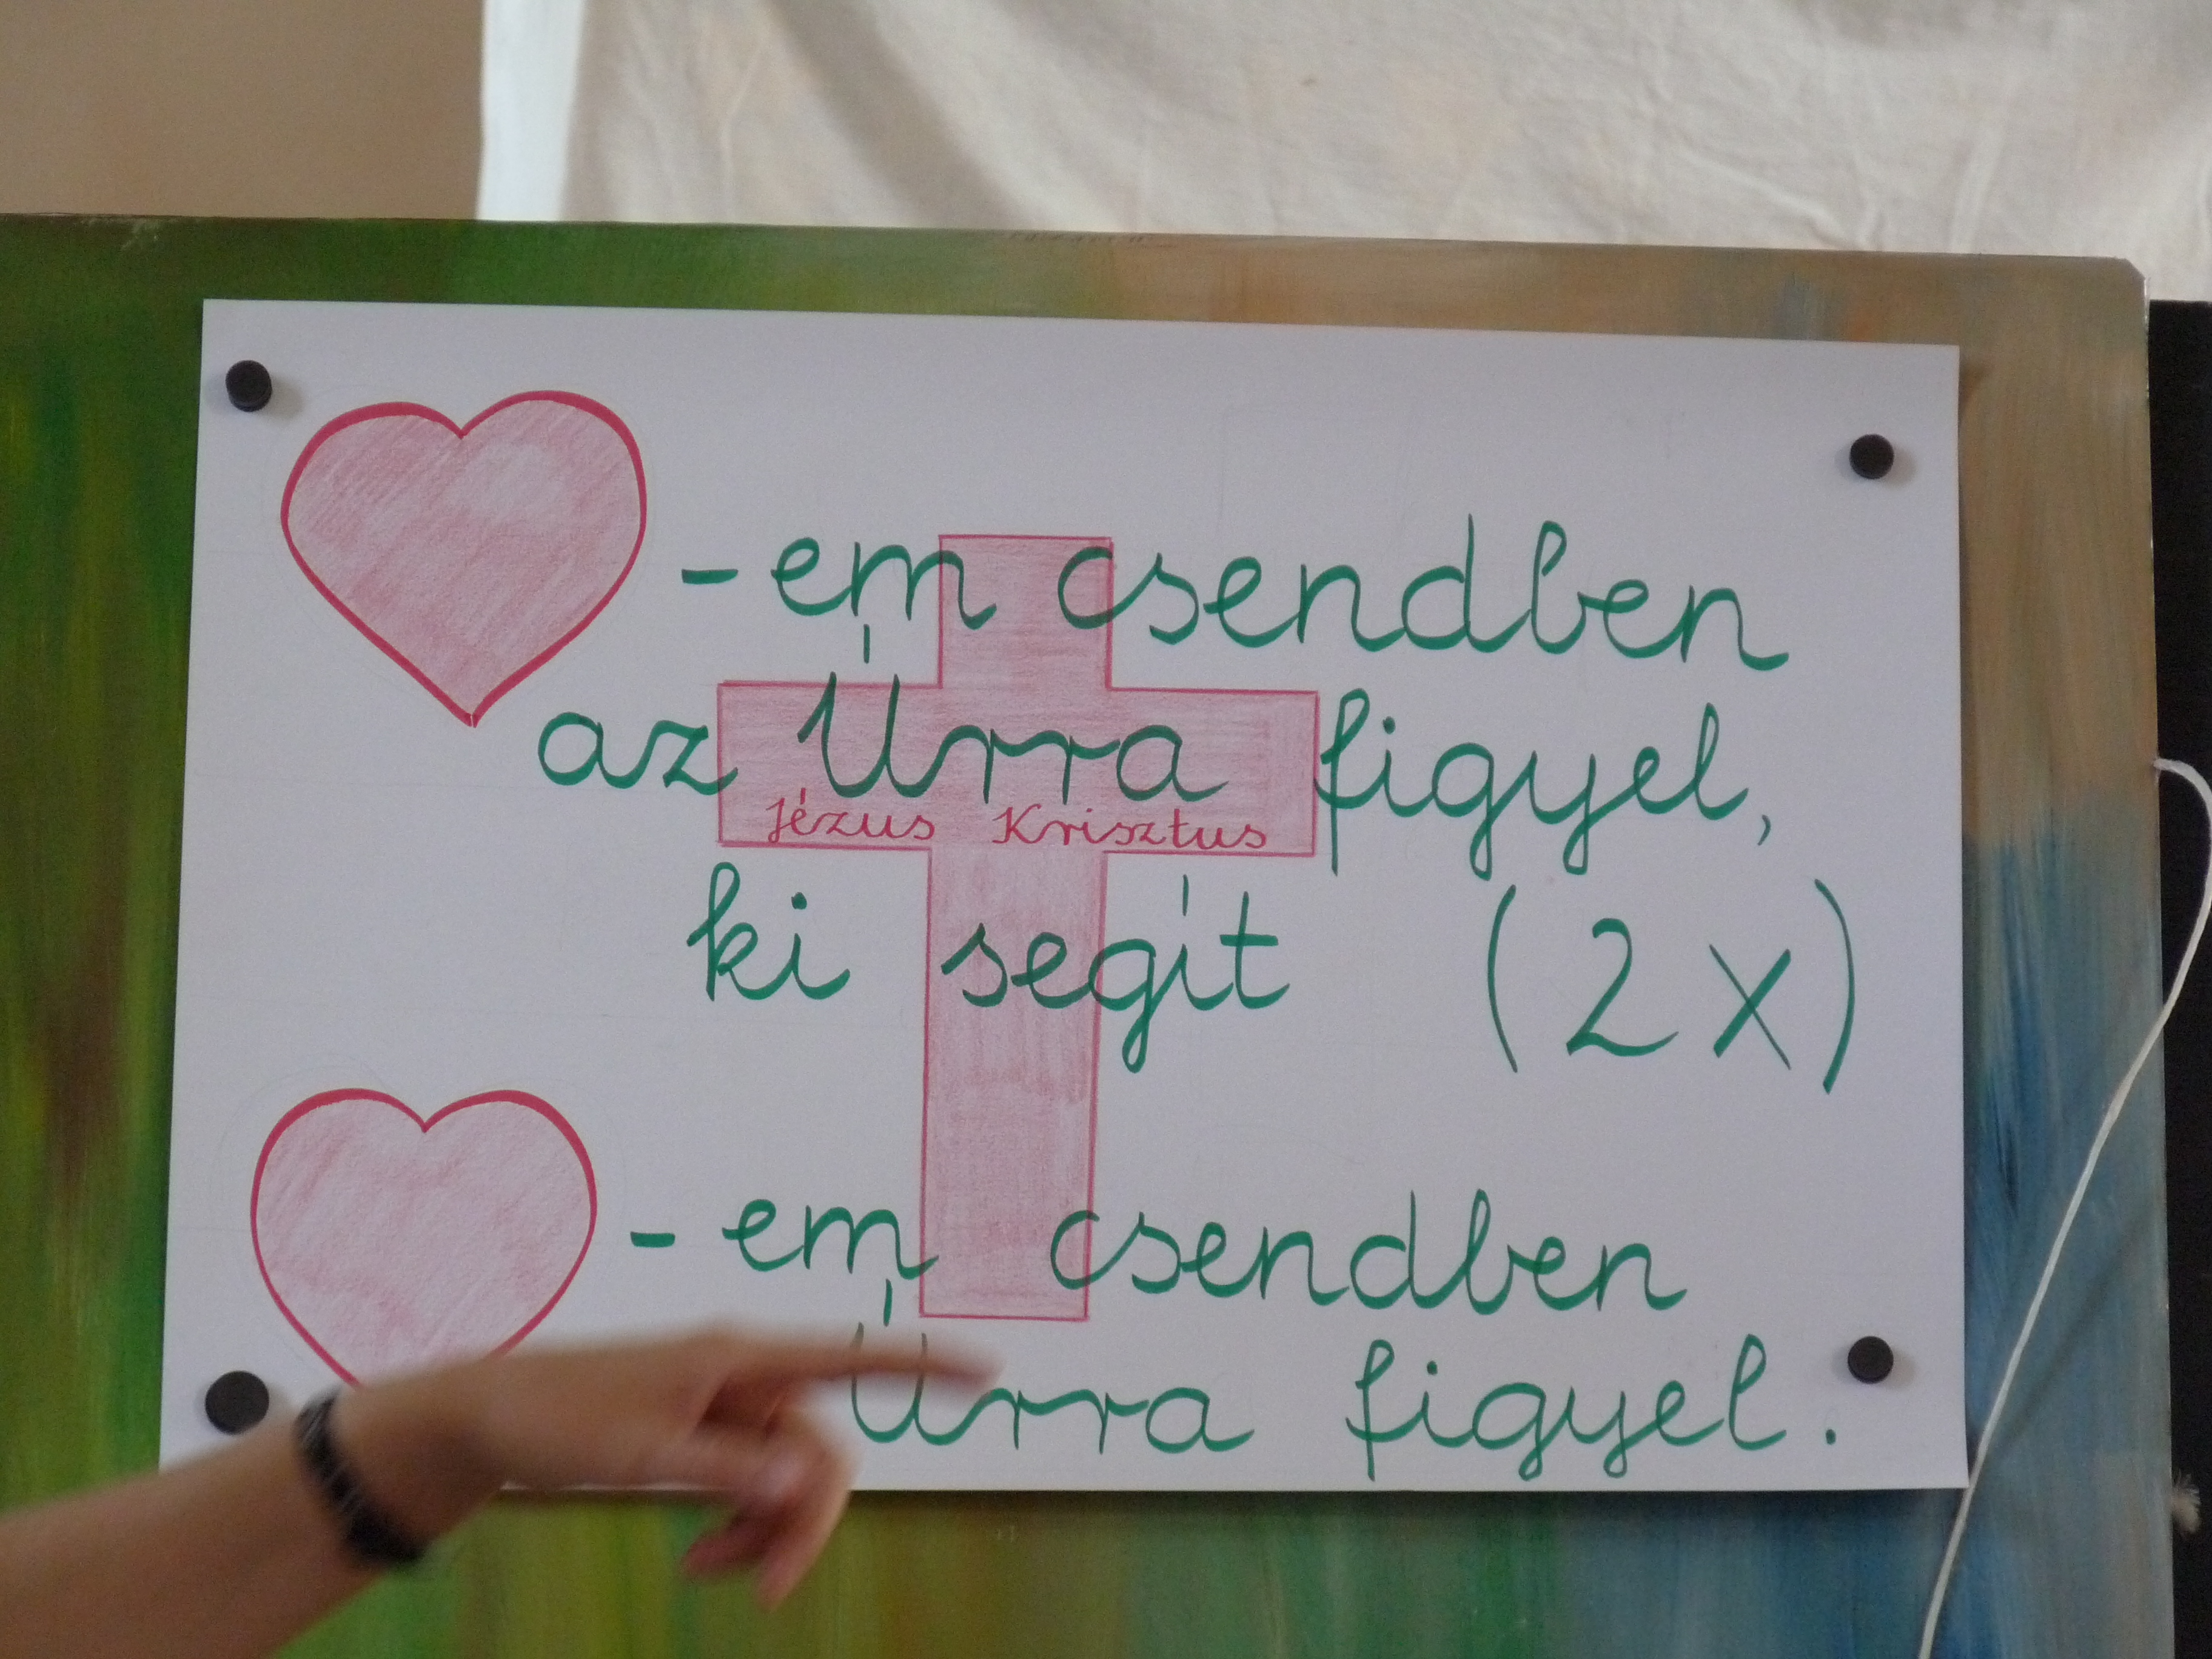 -em csendben
az Úrra figyel,
Jézus Krisztus
ki segít (2x)
-em csendben
Úrra figyel.